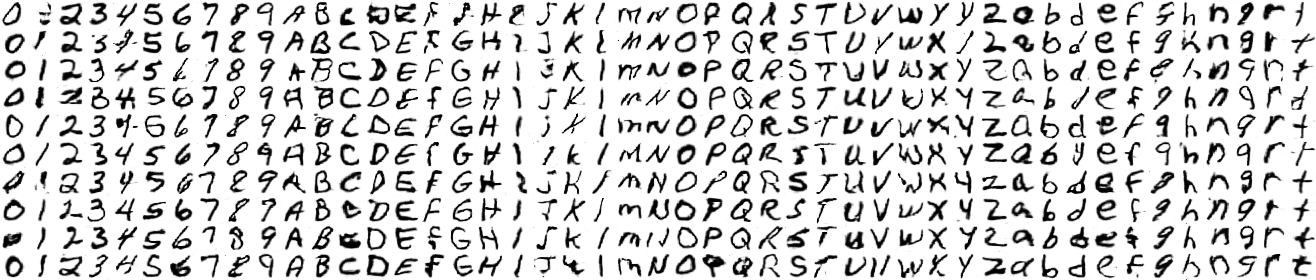 0 1 2 3 4 5 6 7 8 9 A B C D E F G H I J K l m N O P Q R S T U V W X Y Z a b d e f g h n q r t
0 1 2 3 4 5 6 7 8 9 A B C D E F G H I J K l M N O P Q R S T U V W X Y Z a b d e f g h n q r t
0 1 2 3 4 5 6 7 8 9 A B C D E F G H I J K l m N O P Q R S T U V W X Y Z a b d e f g h n q r t
0 1 2 3 4 5 6 7 8 9 A B C D E F G H I J K l m N O P Q R S T U V W X Y Z a b d e f g h n q r t
0 1 2 3 4 5 6 7 8 9 A B C D E F G H I J K l m N O P Q R S T U V W X Y Z a b d e f g h n q r t
0 1 2 3 4 5 6 7 8 9 A B C D E F G H I J K l M N O P Q R S T U V W X Y Z a b d e f g h n q r t
0 1 2 3 4 5 6 7 8 9 A B C D E F G H I J K l m N O P Q R S T U V W X Y Z a b d e f g h n q r t
0 1 2 3 4 5 6 7 8 9 A B C D E F G H I J K l m N O P Q R S T U V W X Y Z a b d e f g h n q r t
0 1 2 3 4 5 6 7 8 9 A B C D E F G H I J K l m N O P Q R S T U V W X Y Z a b d e f g h n q r t
0 1 2 3 4 5 6 7 8 9 A B C D E F G H I J K l m N O P Q R S T U V W X Y Z a b d e f g h n q r t